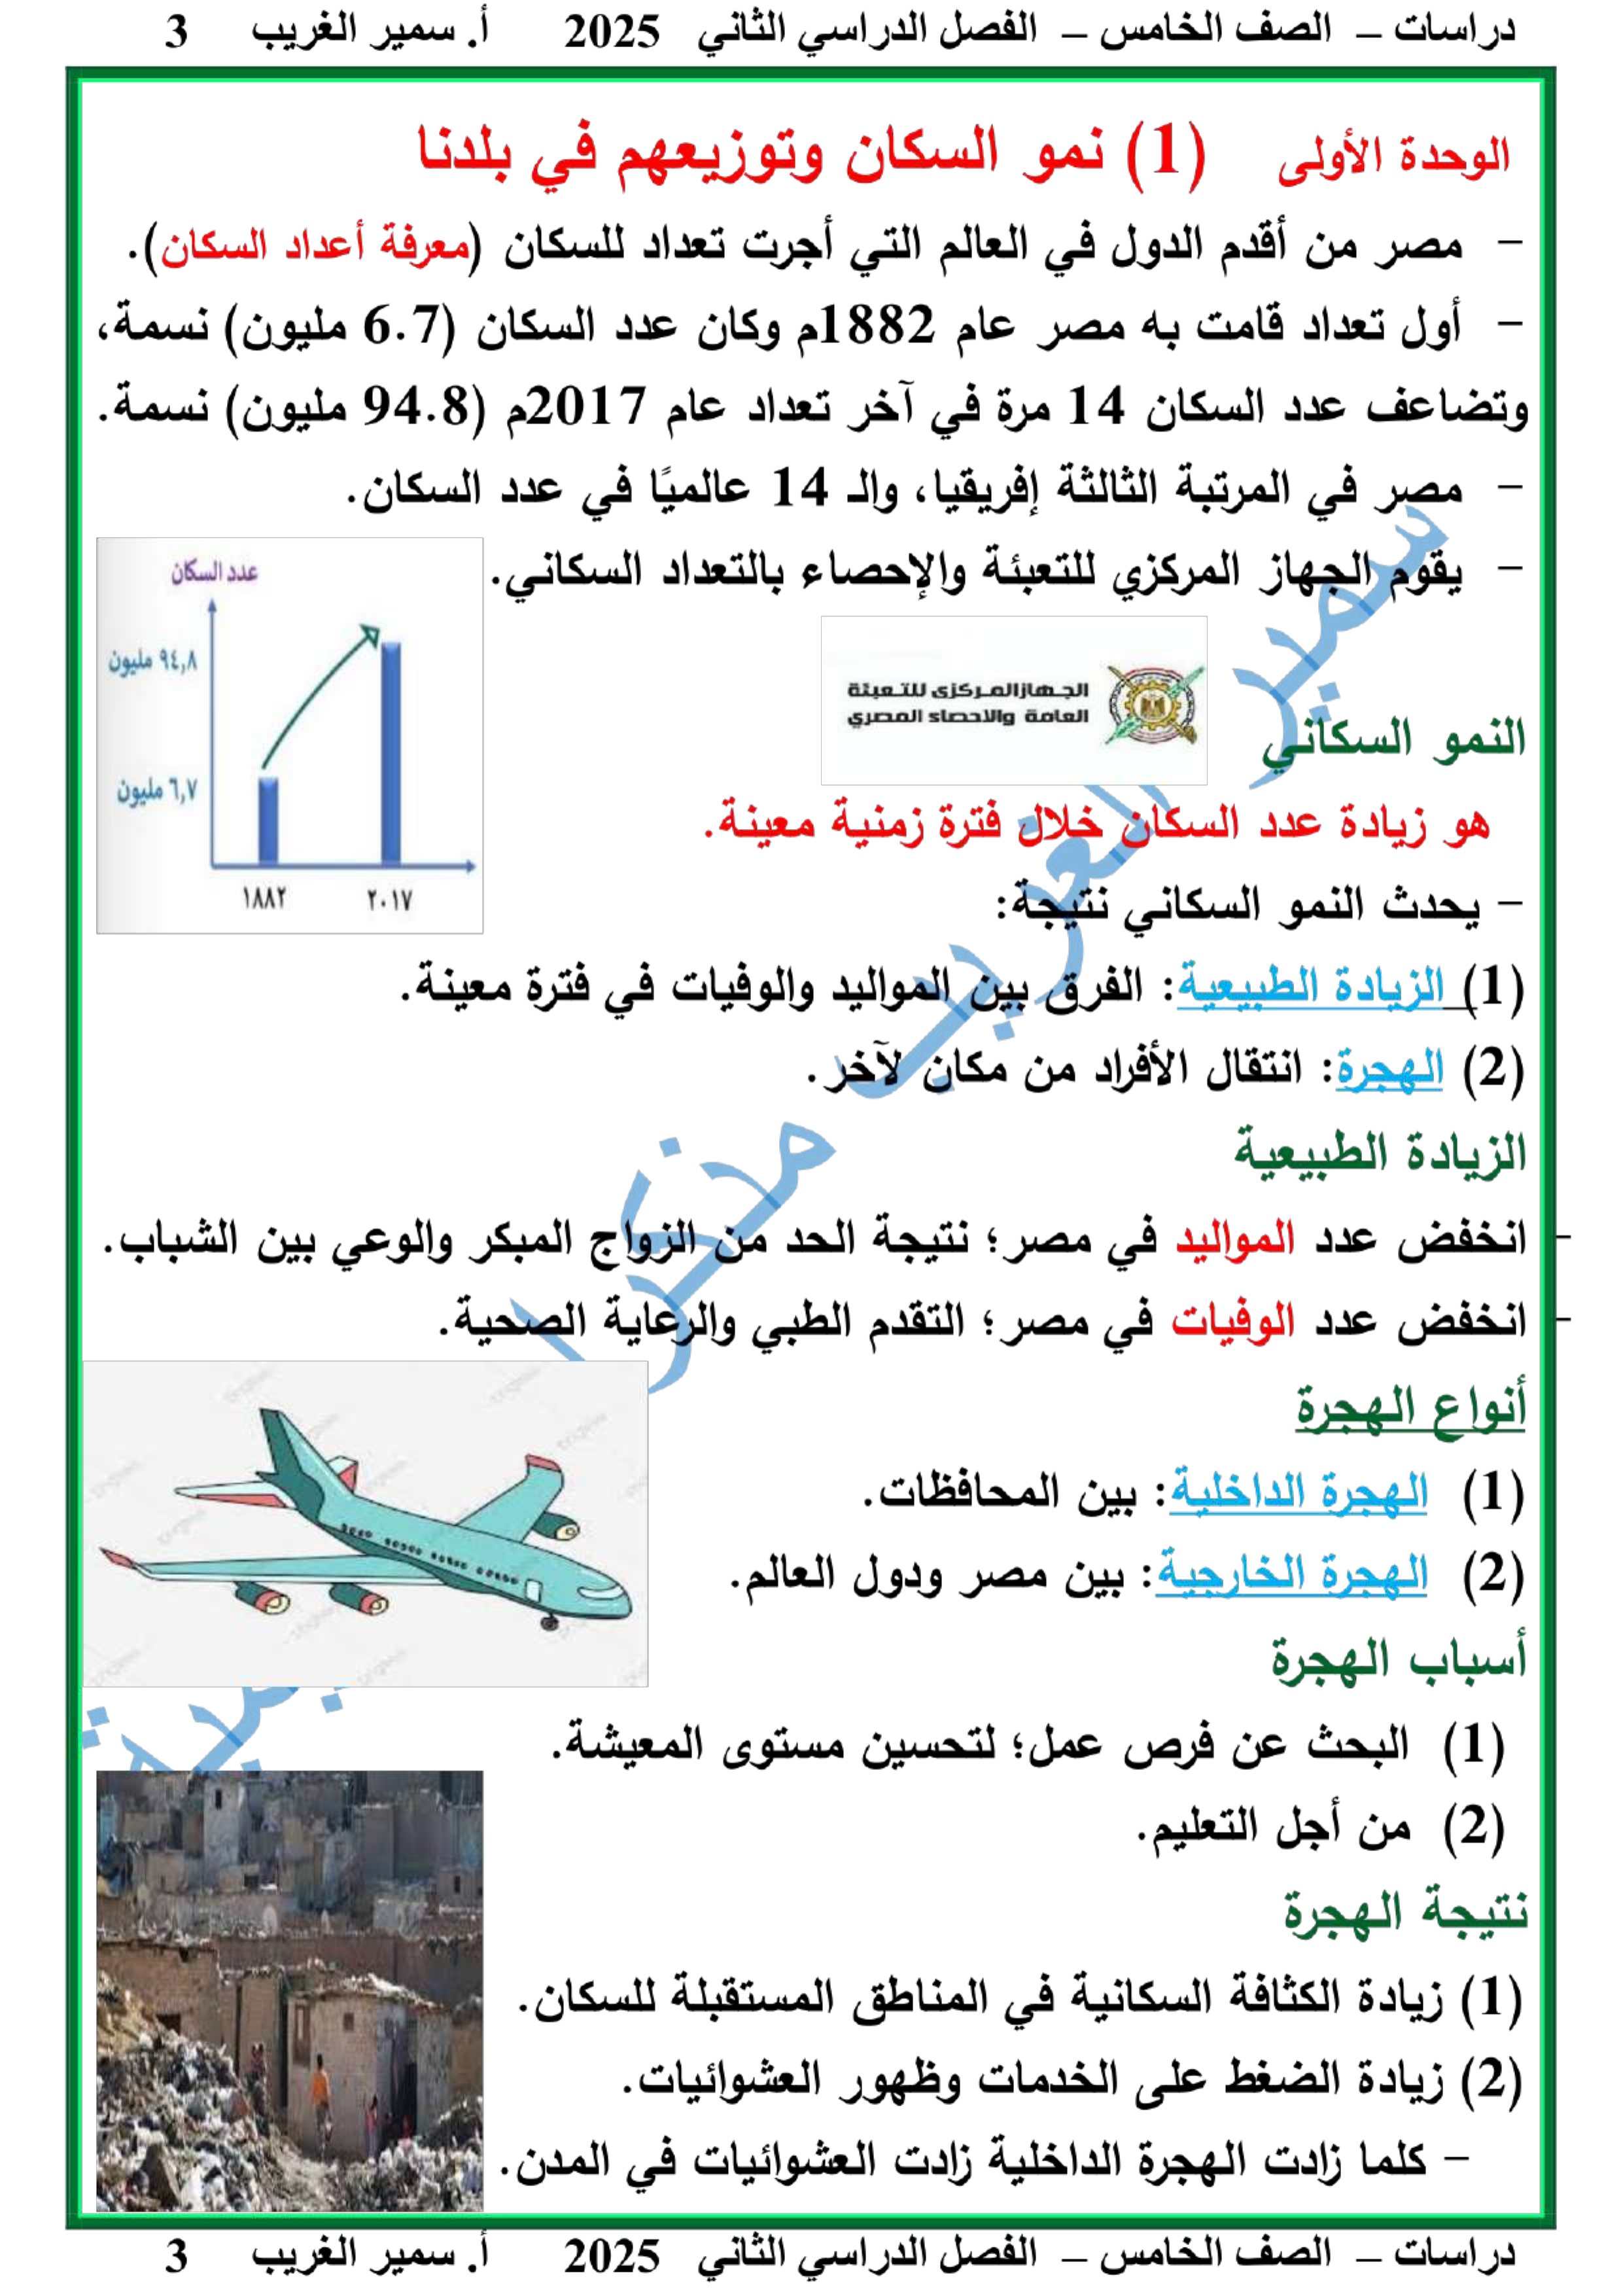 دراسات – الصف الخامس – الفصل الدراسي الثاني 2025 أ. سمير الغريب 3
الوحدة الأولى (1) نمو السكان وتوزيعهم في بلدنا
– مصر من أقدم الدول في العالم التي أجرت تعداد للسكان (معرفة أعداد السكان).
– أول تعداد قامت به مصر عام 1882م وكان عدد السكان (6.7 مليون) نسمة،
وتضاعف عدد السكان 14 مرة في آخر تعداد عام 2017م (94.8 مليون) نسمة.
– مصر في المرتبة الثالثة إفريقيا، والـ 14 عالميًا في عدد السكان.
– يقوم الجهاز المركزي للتعبئة والإحصاء بالتعداد السكاني.
عدد السكان
٩٤,٨ مليون
٦,٧ مليون
١٨٨٢ ٢٠١٧
الجهاز المركزى للتعبئة
العامة والاحصاء المصري
النمو السكاني
هو زيادة عدد السكان خلال فترة زمنية معينة.
– يحدث النمو السكاني نتيجة:
(1) الزيادة الطبيعية: الفرق بين المواليد والوفيات في فترة معينة.
(2) الهجرة: انتقال الأفراد من مكان لآخر.
الزيادة الطبيعية
– انخفض عدد المواليد في مصر؛ نتيجة الحد من الزواج المبكر والوعي بين الشباب.
– انخفض عدد الوفيات في مصر؛ التقدم الطبي والرعاية الصحية.
أنواع الهجرة
(1) الهجرة الداخلية: بين المحافظات.
(2) الهجرة الخارجية: بين مصر ودول العالم.
أسباب الهجرة
(1) البحث عن فرص عمل؛ لتحسين مستوى المعيشة.
(2) من أجل التعليم.
نتيجة الهجرة
(1) زيادة الكثافة السكانية في المناطق المستقبلة للسكان.
(2) زيادة الضغط على الخدمات وظهور العشوائيات.
– كلما زادت الهجرة الداخلية زادت العشوائيات في المدن.
سمير الغريب
دراسات – الصف الخامس – الفصل الدراسي الثاني 2025 أ. سمير الغريب 3